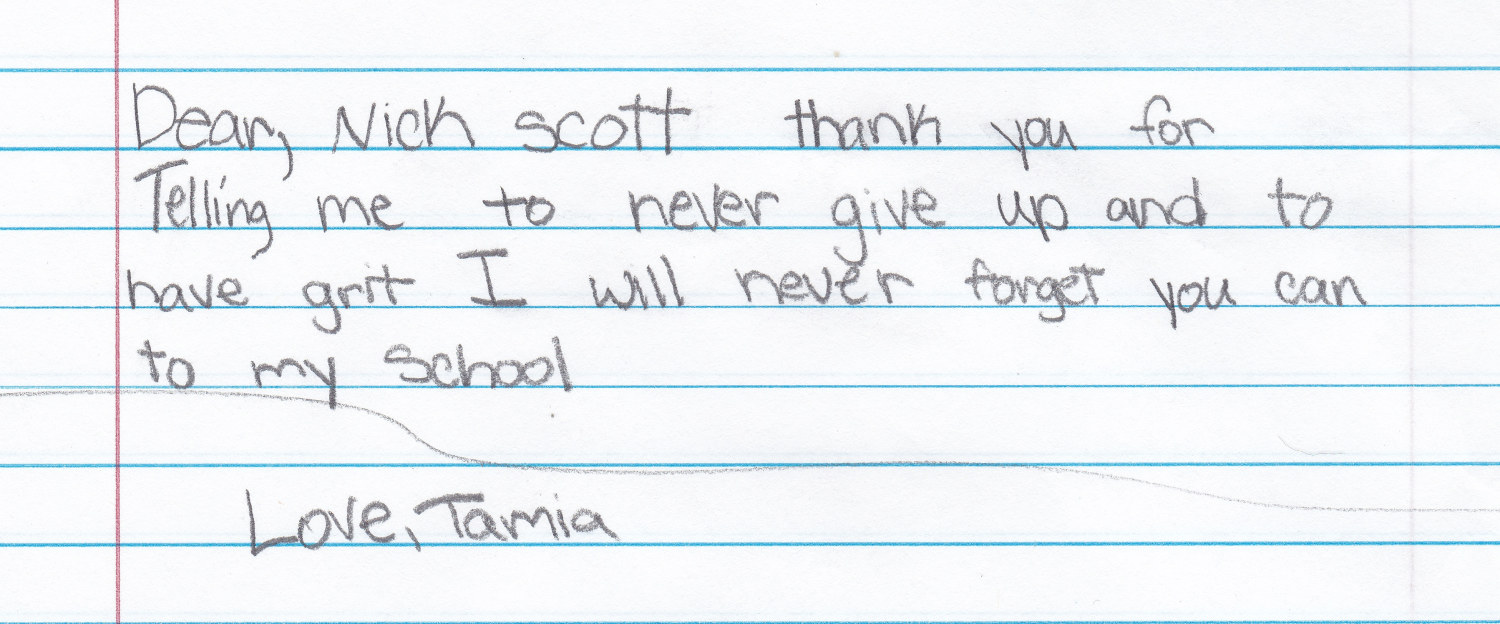 Dear, Nick scott thank you for
Telling me to never give up and to
have grit I will never forget you can
to my school
Love, Tamia